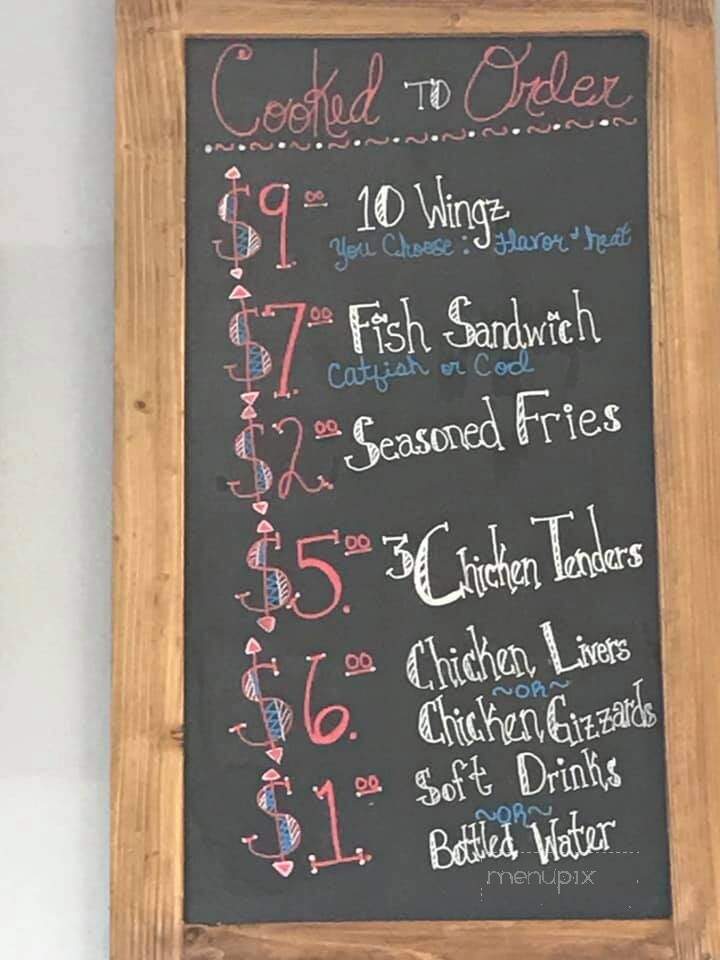 Cooked TO Order
$9.00 10 Wingz
You Choose: Flavor & heat
$7.00 Fish Sandwich
Catfish or Cod
$2.00 Seasoned Fries
$5.00 3 Chicken Tenders
$6.00 Chicken Livers
~OR~
Chicken Gizzards
$1.00 Soft Drinks
~OR~
Bottled Water
menupix